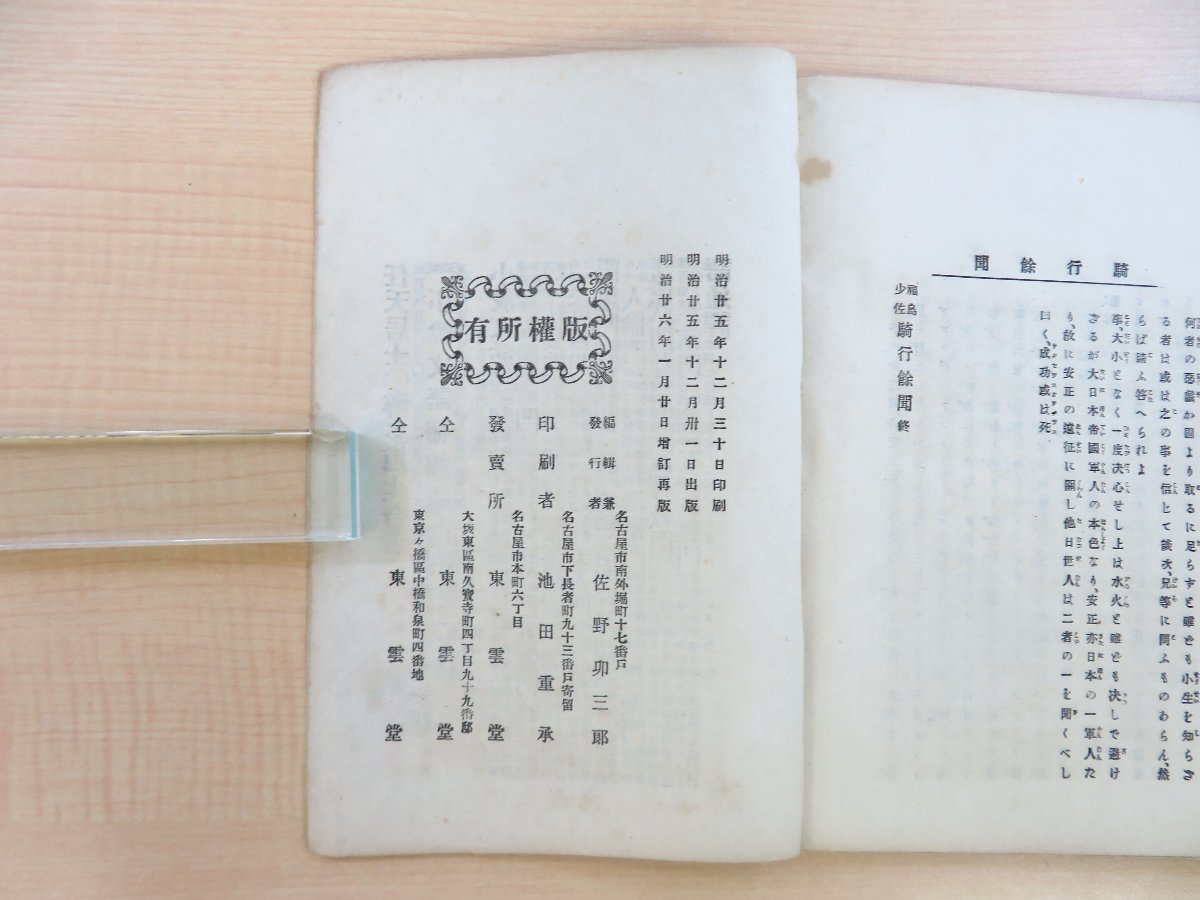 何者の惡戯か固より取るに足らずと雖も小生を知らざ
る者は或は之の事を信じて談次、兄等に問ふものあらん、然
らば請ふ答へられよ
事、大小となく一度决心せし上は水火と雖も决して避け
ざるが大日本帝國軍人の本色なり、安正亦日本の一軍人た
り、故に安正の遠征に關し他日世人は二者の一を聞くべし
曰く、成功或は死
騎行餘聞
福島少佐騎行餘聞終
明治廿五年十二月三十日印刷
明治廿五年十二月卅一日出版
明治廿六年一月廿日增訂再版
版權所有
名古屋市南外堀町十七番戸
編輯兼發行者 佐野卯三郎
名古屋市下長者町九十三番戸寄留
印刷者 池田重承
名古屋市本町六丁目
發賣所 東雲堂
大坂東區南久寶寺町四丁目九十九番邸
仝 東雲堂
東京々橋區中橋和泉町四番地
仝 東雲堂